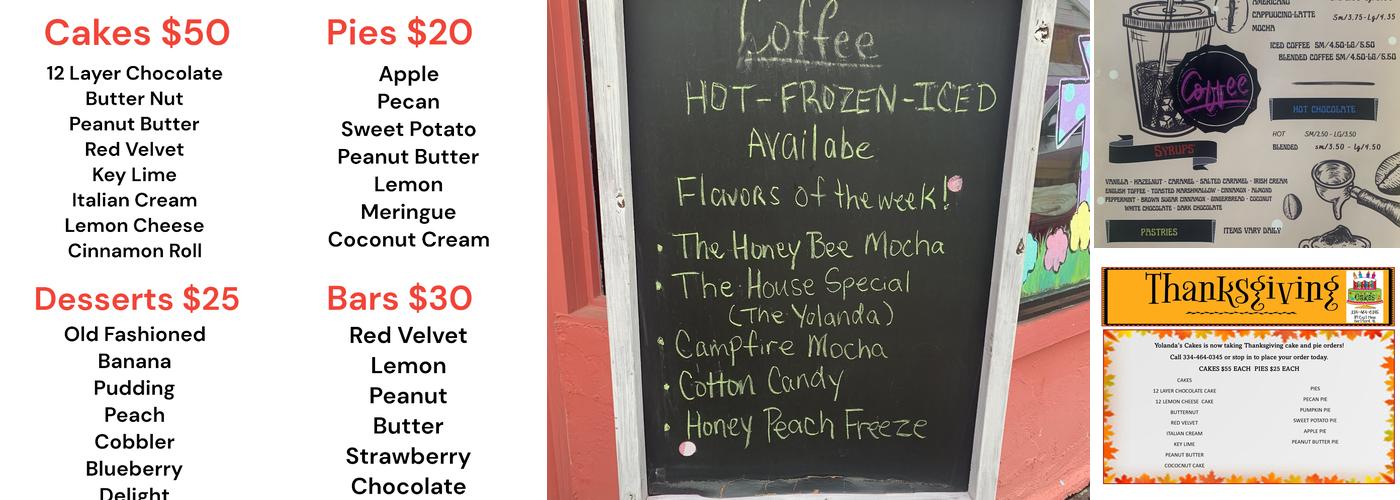 Cakes $50
12 Layer Chocolate
Butter Nut
Peanut Butter
Red Velvet
Key Lime
Italian Cream
Lemon Cheese
Cinnamon Roll
Pies $20
Apple
Pecan
Sweet Potato
Peanut Butter
Lemon
Meringue
Coconut Cream
Desserts $25
Old Fashioned
Banana
Pudding
Peach
Cobbler
Blueberry
Delight
Bars $30
Red Velvet
Lemon
Peanut
Butter
Strawberry
Chocolate
Coffee
HOT-FROZEN-ICED
Availabe
Flavors of the week!
• The Honey Bee Mocha
• The House Special
(The Yolanda)
• Campfire Mocha
• Cotton Candy
• Honey Peach Freeze
AMERICANO
CAPPUCCINO-LATTE Sm/3.75-Lg/4.35
MOCHA
ICED COFFEE SM/4.50-LG/5.50
BLENDED COFFEE SM/4.50-LG/5.50
Coffee
HOT CHOCOLATE
HOT SM/2.50 - LG/3.50
BLENDED sm/3.50 - Lg/4.50
SYRUPS
VANILLA - HAZELNUT - CARAMEL - SALTED CARAMEL - IRISH CREAM
ENGLISH TOFFEE - TOASTED MARSHMALLOW - CINNAMON - ALMOND
PEPPERMINT - BROWN SUGAR CINNAMON - GINGERBREAD - COCONUT
WHITE CHOCOLATE - DARK CHOCOLATE
PASTRIES ITEMS VARY DAILY
Thanksgiving
Cakes
334-464-0345
Yolanda's Cakes is now taking Thanksgiving cake and pie orders!
Call 334-464-0345 or stop in to place your order today.
CAKES $55 EACH PIES $25 EACH
CAKES
12 LAYER CHOCOLATE CAKE
12 LEMON CHEESE CAKE
BUTTERNUT
RED VELVET
ITALIAN CREAM
KEY LIME
PEANUT BUTTER
COCOCNUT CAKE
PIES
PECAN PIE
PUMPKIN PIE
SWEET POTATO PIE
APPLE PIE
PEANUT BUTTER PIE